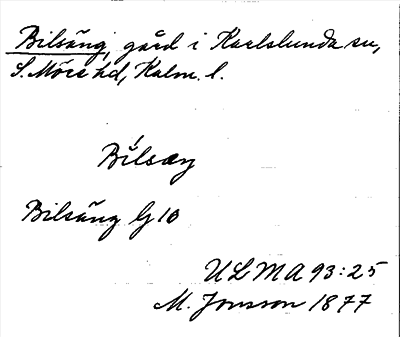 Bilsäng, gård i Karlslunda sn,
S. Möre hd, Kalm. l.
Bilsæng
Bilsäng G 10
ULMA 93:25
M. Jonsson 1877